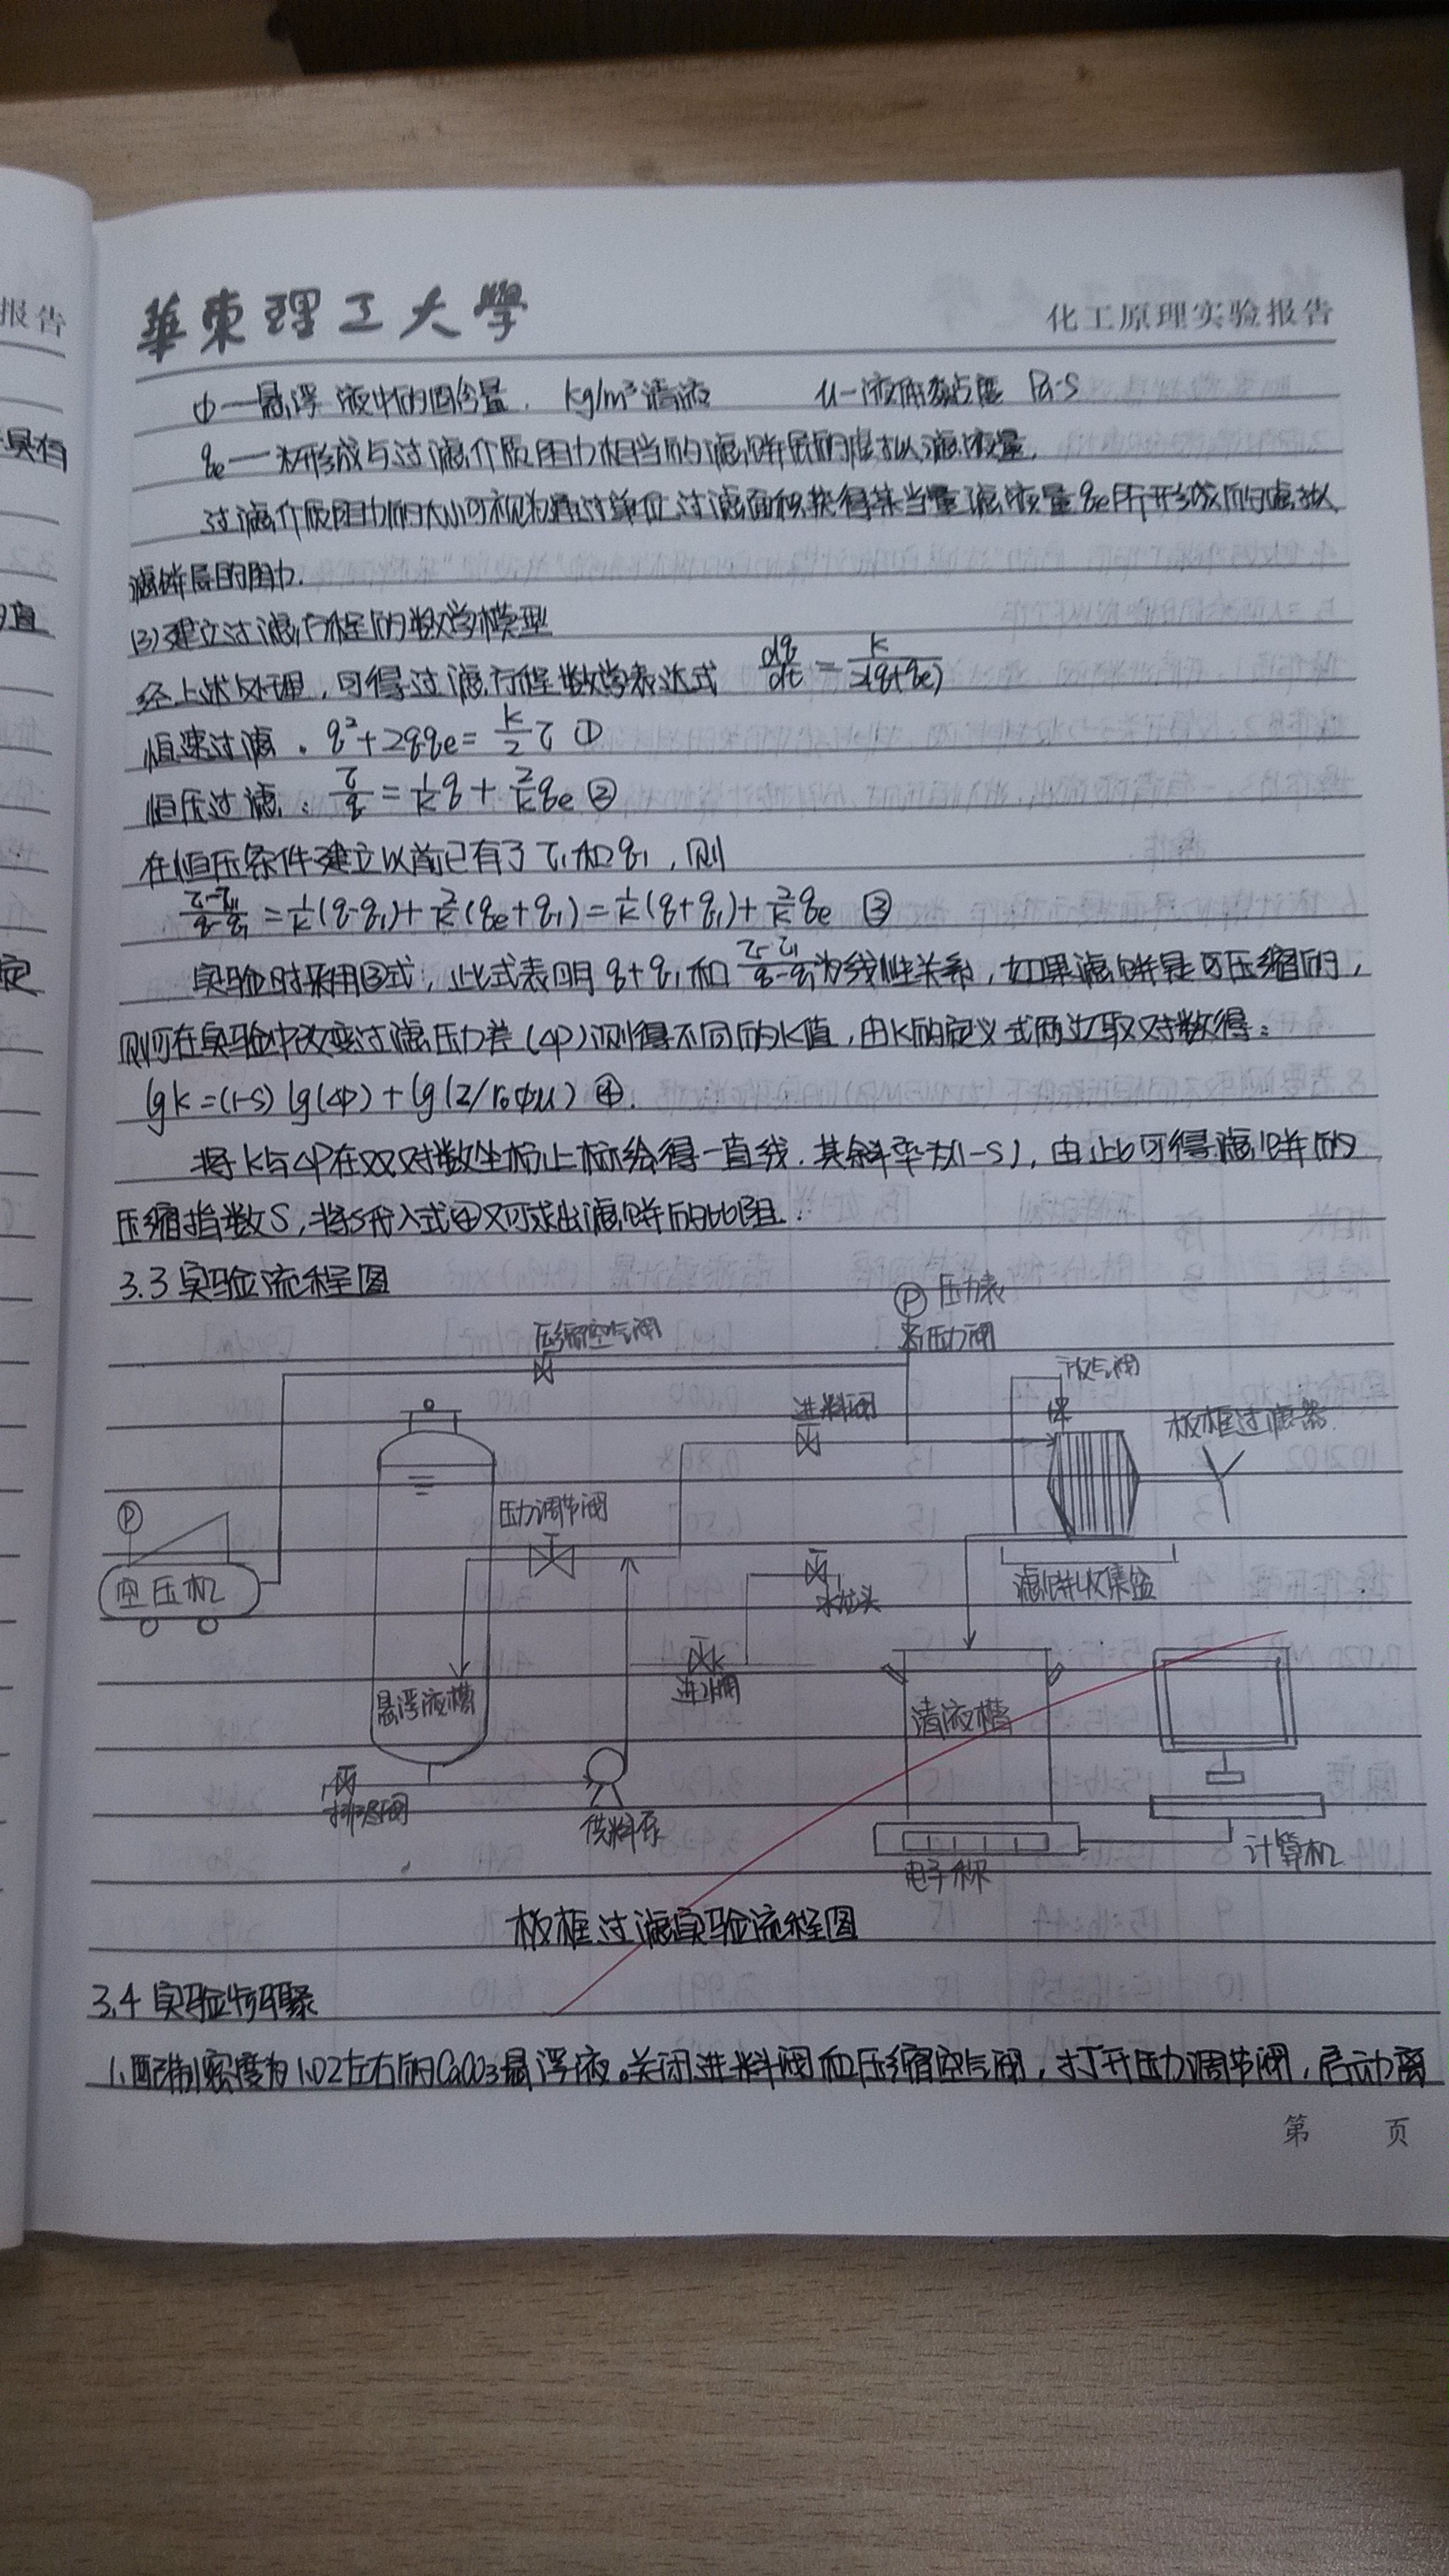 華東理工大學
化工原理实验报告
报告
φ—悬浮液中的固含量. kg/m³清液 μ-液体黏度 Pa·S
qe—为形成与过滤介质阻力相当的滤饼层的虚拟滤液量.
过滤介质阻力的大小可视为通过单位过滤面积获得某当量滤液量qe所形成的虚拟
滤饼层的阻力.
(3)建立过滤方程的数学模型
经上述处理,可得过滤方程数学表达式 dq/dτ=K/2(q+qe)
恒速过滤. q²+2qqe=K/2 τ ①
恒压过滤: τ/q=1/K q+2/K qe ②
在恒压条件建立以前已有了τ₁和q₁,则
τ-τ₁/q-q₁=1/K(q-q₁)+2/K(qe+q₁)=1/K(q+q₁)+2/K qe ③
实验时采用③式,此式表明q+q₁和τ-τ₁/q-q₁为线性关系,如果滤饼是可压缩的,
则可在实验中改变过滤压力差(ΔP)测得不同的K值,由K的定义式两边取对数得:
lgK=(1-S)lg(ΔP)+lg(2/r₀φμ) ④.
将K与ΔP在双对数坐标上标绘得一直线.其斜率为(1-S),由此可得滤饼的
压缩指数S,将S代入式④又可求出滤饼的比阻.
3.3实验流程图
P 压力表
压缩空气阀
压力阀
放气阀
进料阀
板框过滤器
P
压力调节阀
空压机
滤饼收集盘
水龙头
进水阀
悬浮液槽
清液槽
排泥阀
供料泵
电子秤
计算机
板框过滤实验流程图
3.4实验步骤
1.配制密度为1.02左右的CaCO3悬浮液。关闭进料阀和压缩空气阀,打开压力调节阀,启动离
第 页